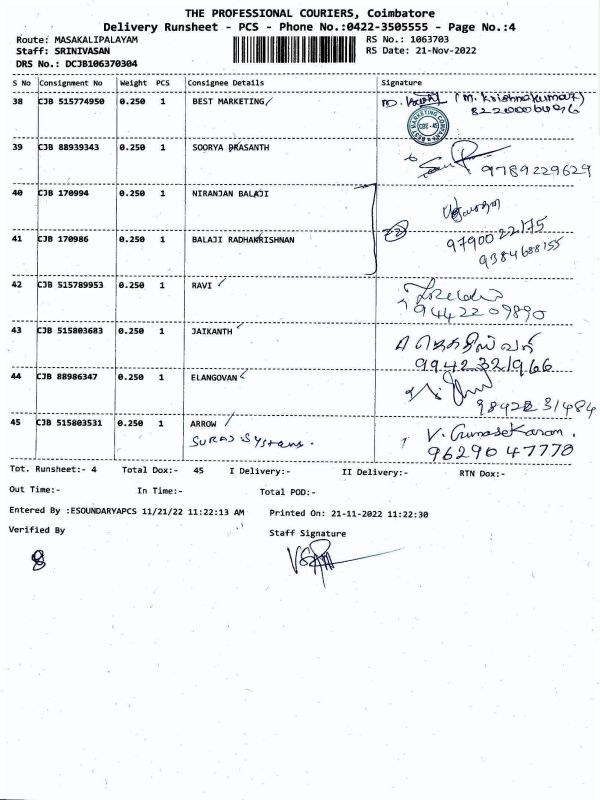 THE PROFESSIONAL COURIERS, Coimbatore
Delivery Runsheet - PCS - Phone No.:0422-3505555 - Page No.:4
Route: MASAKALIPALAYAM RS No.: 1063703
Staff: SRINIVASAN RS Date: 21-Nov-2022
DRS No.: DCJB106370304
S No Consignment No Weight PCS Consignee Details Signature
38 CJB 515774950 0.250 1 BEST MARKETING (M. Krishnakumar)
39 CJB 88939343 0.250 1 SOORYA PRASANTH
9789229629
40 CJB 170994 0.250 1 NIRANJAN BALAJI
41 CJB 170986 0.250 1 BALAJI RADHAKRISHNAN 9790022175
9384688155
42 CJB 515789953 0.250 1 RAVI
9442209890
43 CJB 515803683 0.250 1 JAIKANTH
9942321966
44 CJB 88986347 0.250 1 ELANGOVAN
45 CJB 515803531 0.250 1 ARROW V. Gunasekaran.
SURAJ Systems. 9629047770
Tot. Runsheet:- 4 Total Dox:- 45 I Delivery:- II Delivery:- RTN Dox:-
Out Time:- In Time:- Total POD:-
Entered By :ESOUNDARYAPCS 11/21/22 11:22:13 AM Printed On: 21-11-2022 11:22:30
Verified By Staff Signature